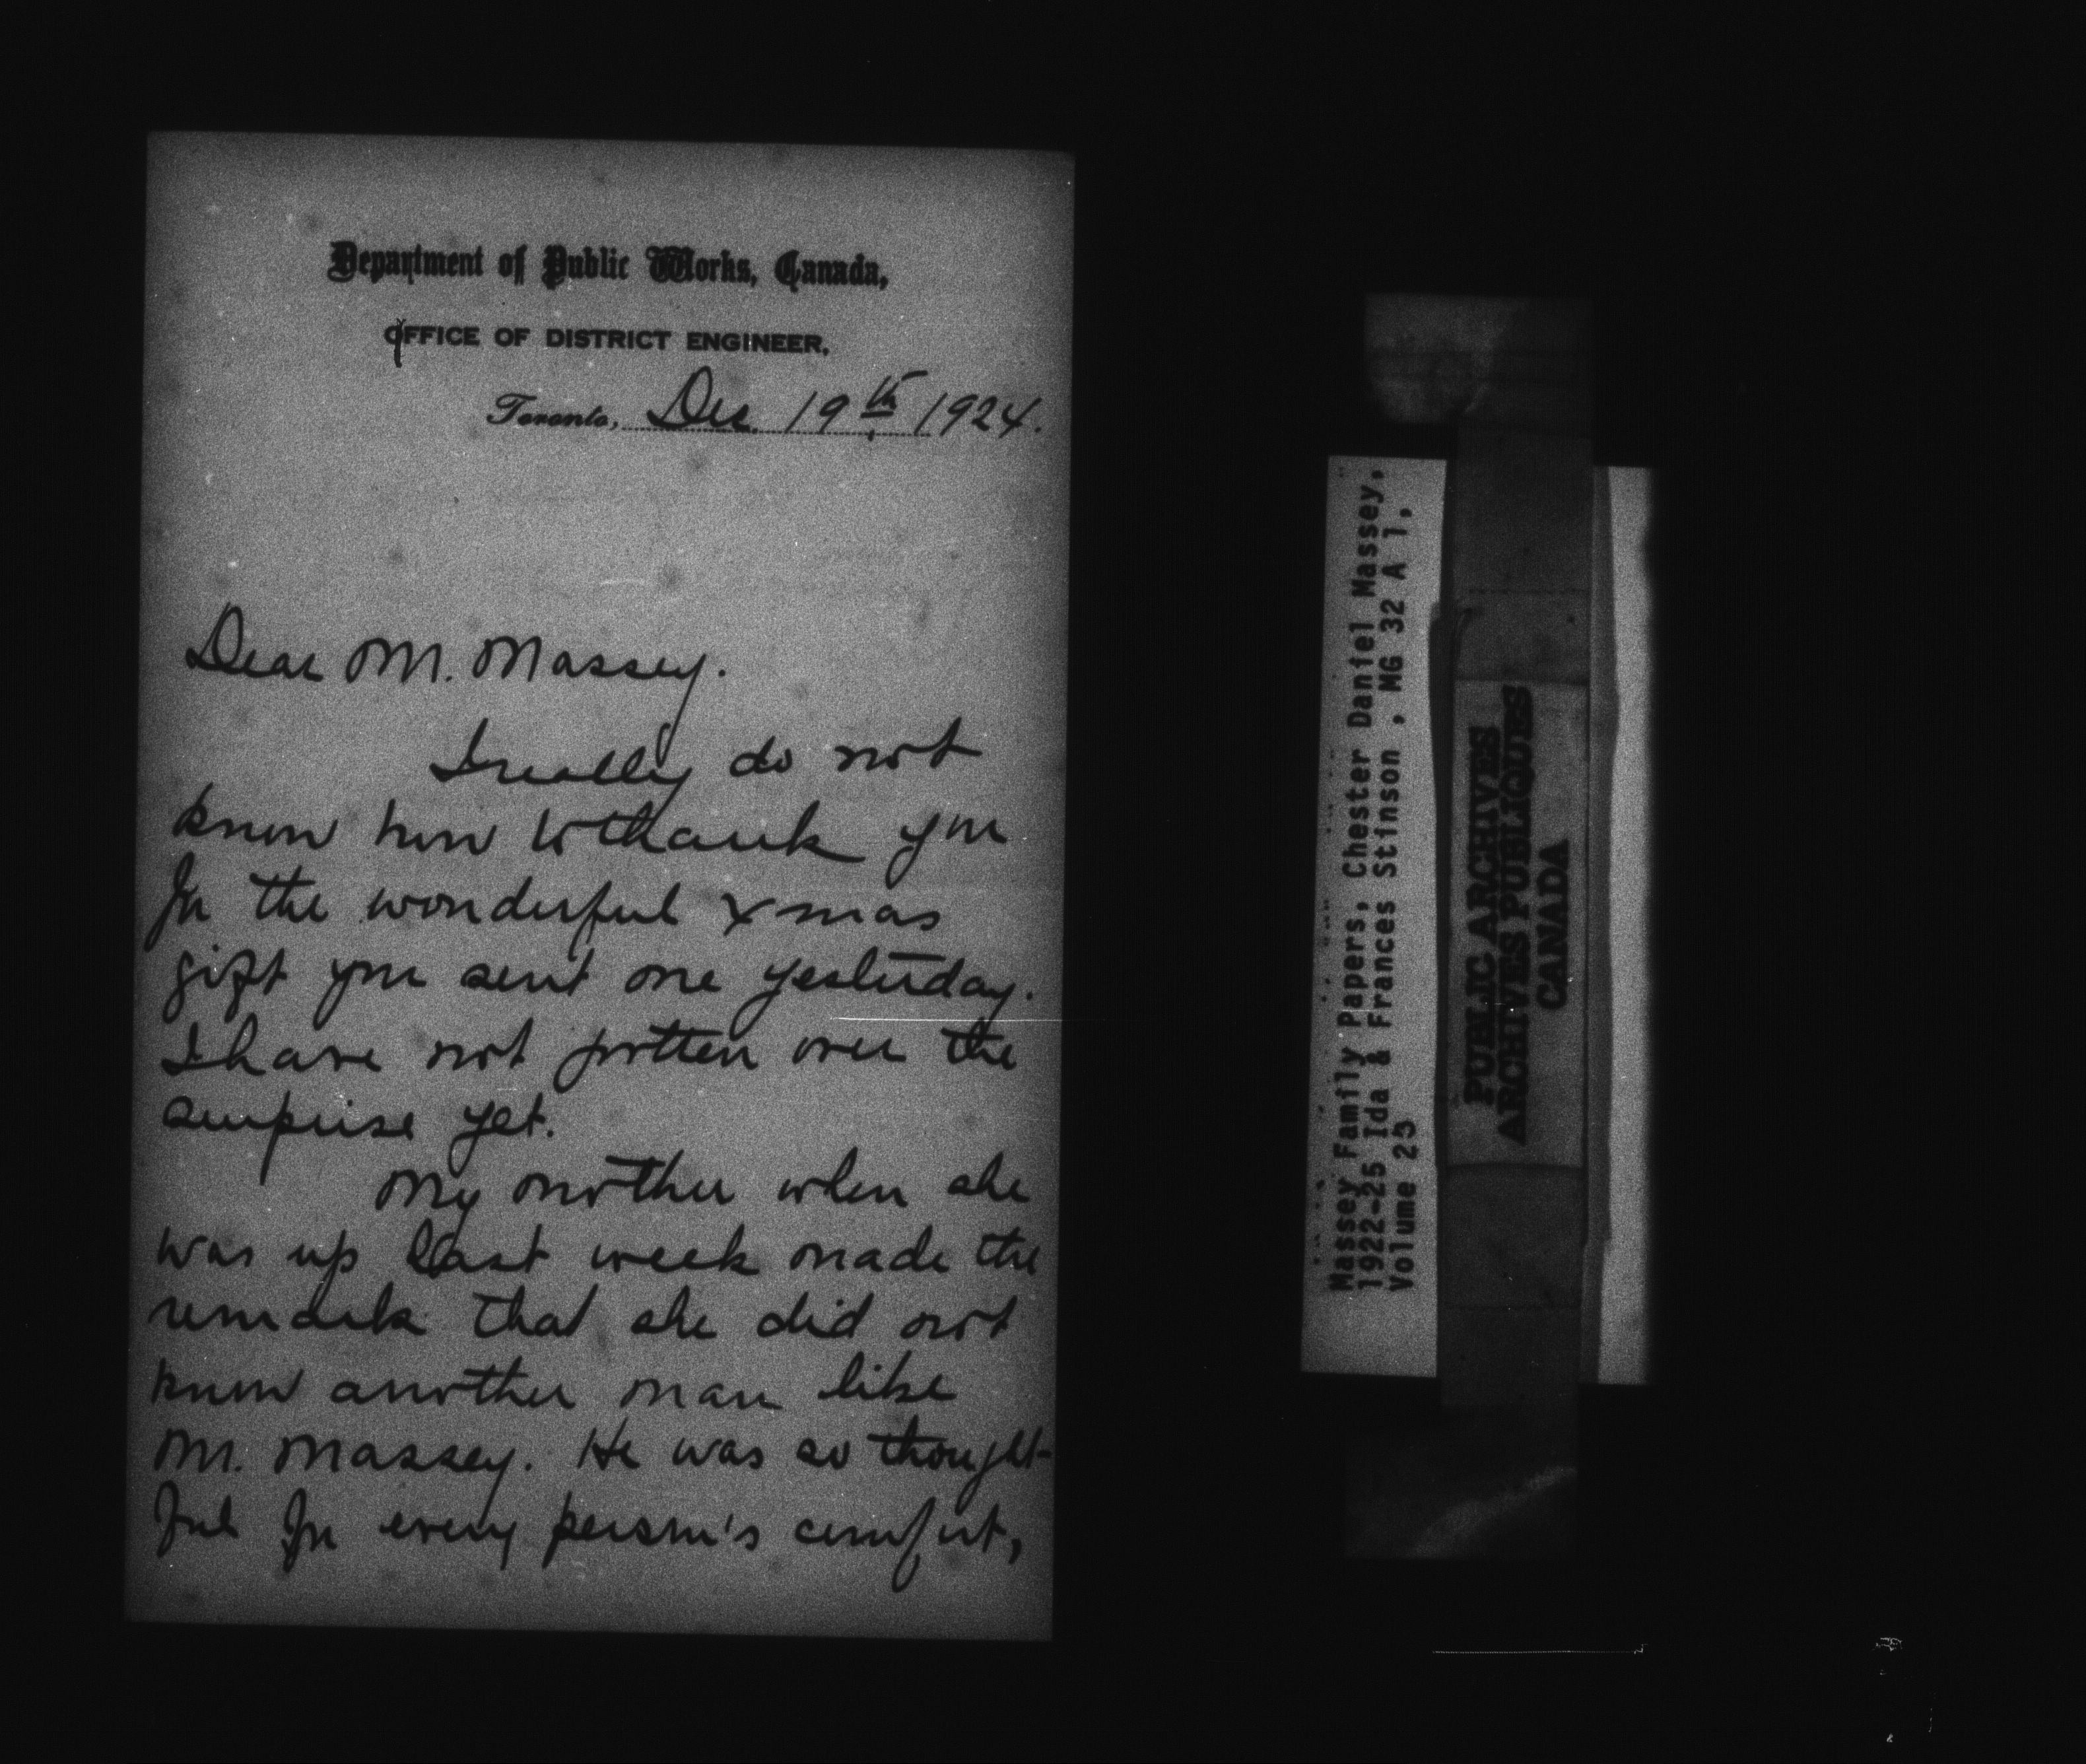 Department of Public Works, Canada,
OFFICE OF DISTRICT ENGINEER.
Toronto, Dec. 19th 1924.
Dear Mr. Massey.
I really do not
know how to thank you
for the wonderful xmas
gift you sent me yesterday.
I have not gotten over the
surprise yet.
My mother when she
was up last week made the
remark that she did not
know another man like
Mr. Massey. He was so thought-
ful for every person's comfort,
Massey Family Papers, Chester Daniel Massey,
1922-25 Ida & Frances Stinson , MG 32 A 1,
Volume 23
PUBLIC ARCHIVES
ARCHIVES PUBLIQUES
CANADA